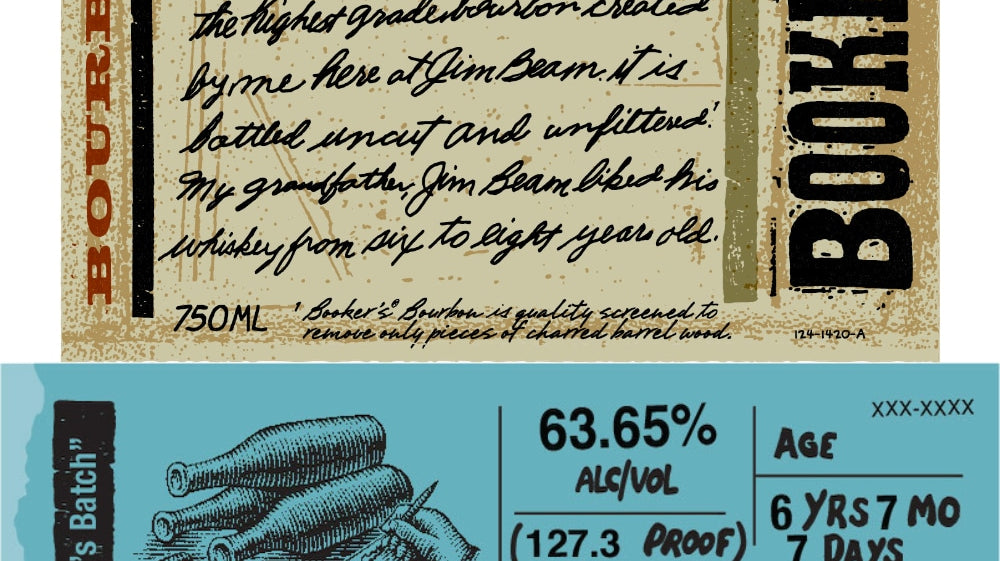 BOURB
the highest grade bourbon created
by me here at Jim Beam. it is
bottled uncut and unfiltered.¹
My grandfather, Jim Beam liked his
whiskey from six to eight years old.
750ML
¹ Booker's® Bourbon is quality screened to
remove only pieces of charred barrel wood.
BOOK
124-1420-A
's Batch"
63.65%
ALC/VOL
(127.3 PROOF)
XXX-XXXX
AGE
6 YRS 7 MO
7 DAYS